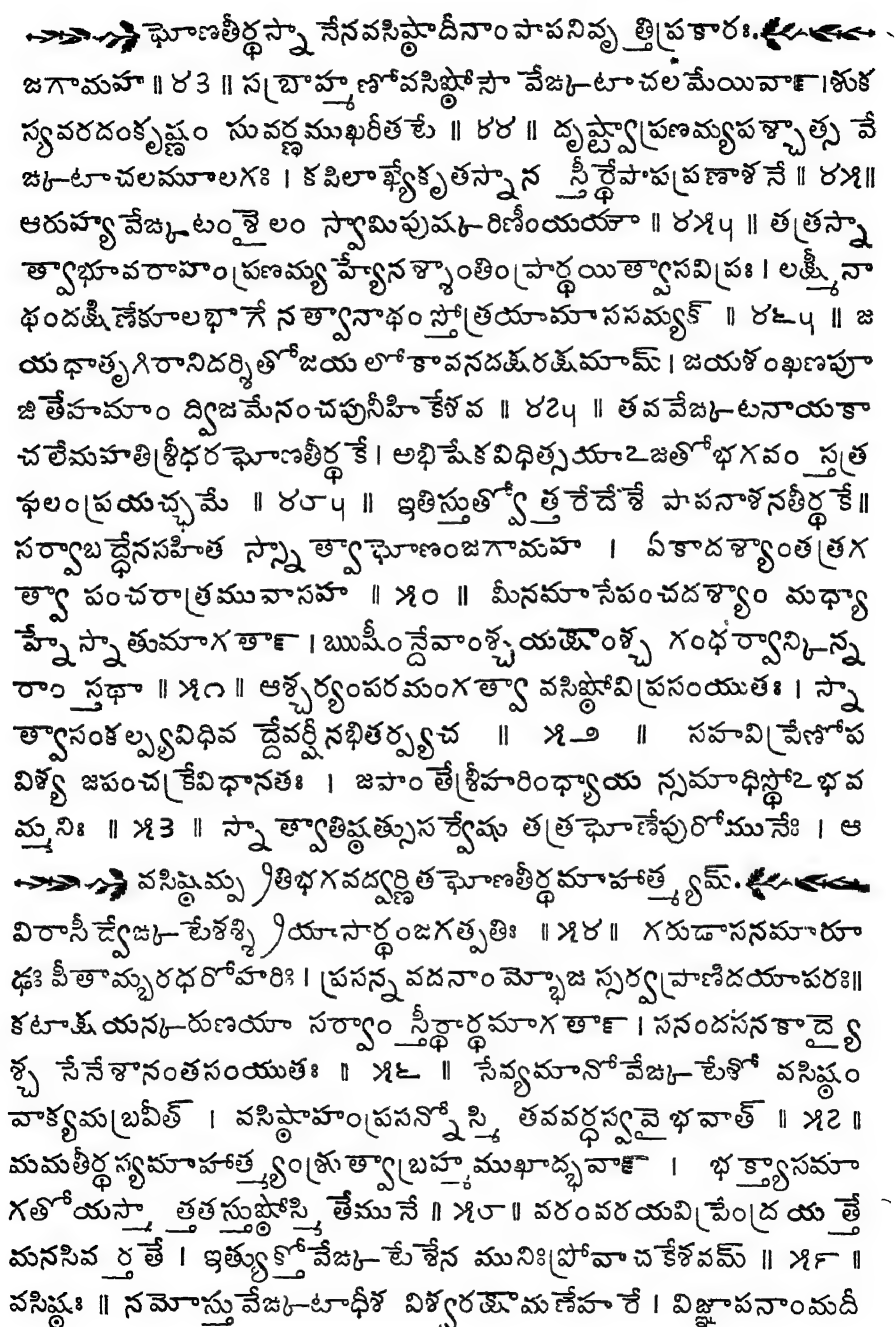 ఘోణతీర్థస్నానేనవసిష్ఠాదీనాం పాపనివృత్తిప్రకారః.
జగామహ ॥ ౪౩ ॥ సబ్రాహ్మణోవసిష్ఠోసౌ వేఙ్కటాచలమేయివాన్ । శుక
స్యవరదంకృష్ణం సువర్ణముఖరీతటే ॥ ౪౪ ॥ దృష్ట్వాప్రణమ్యపశ్చాత్స వే
ఙ్కటాచలమూలగః । కపిలాఖ్యేకృతస్నాన స్తీర్థేపాపప్రణాశనే ॥ ౪౫॥
ఆరుహ్య వేఙ్కటంశైలం స్వామిపుష్కరిణీంయయౌ ॥ ౪౫౺ ॥ తత్రస్నా
త్వాభూవరాహంప్రణమ్య హ్యేనశ్శాంతింప్రార్థయిత్వాసవిప్రః । లక్ష్మీనా
థందక్షిణేకూలభాగే నత్వానాథం స్తోత్రయామాససమ్యక్ ॥ ౪౬౺ ॥ జ
యధాతృగిరానిదర్శితోజయ లోకావనదక్షరక్షమామ్ । జయశంఖణపూ
జితేహమాం ద్విజమేనంచపునీహికేశవ ॥ ౪౭౺ ॥ తవవేఙ్కటనాయకా
చలేమహతిశ్రీధర ఘోణతీర్థకే । అభిషేకవిధిత్సయాఽజతోభగవం స్తత్ర
ఫలంప్రయచ్ఛమే ॥ ౪౮౺ ॥ ఇతిస్తుత్వోత్తరేదేశే పాపనాశనతీర్థకే॥
సర్వాబద్ధేనసహిత స్స్నాత్వాఘోణంజగామహ । ఏకాదశ్యాంతత్రగ
త్వా పంచరాత్రమువాసహ ॥ ౫౦ ॥ మీనమాసేపంచదశ్యాం మధ్యా
హ్నేస్నాతుమాగతాన్ । ఋషీందేవాంశ్చయక్షాంశ్చ గంధర్వాన్కిన్న
రాం స్తథా ॥ ౫౧ ॥ ఆశ్చర్యంపరమంగత్వా వసిష్ఠోవిప్రసంయుతః । స్నా
త్వాసంకల్ప్యవిధివ ద్దేవర్షీనభితర్ప్యచ ॥ ౫౨ ॥ సహవిప్రేణోప
విశ్య జపంచక్రేవిధానతః । జపాంతేశ్రీహరింధ్యాయ న్సమాధిస్థోఽభవ
న్మునిః ॥ ౫౩ ॥ స్నాత్వాతిష్ఠత్సుసర్వేషు తత్రఘోణేపురోమునేః । ఆ
వసిష్ఠమ్ప్రతిభగవద్వర్ణిత ఘోణతీర్థమాహాత్మ్యమ్.
విరాసీద్వేఙ్కటేశశ్శ్రియాసార్థంజగత్పతిః ॥ ౫౪ ॥ గరుడాసనమారూ
ఢః పీతామ్బరధరోహరిః । ప్రసన్నవదనాంమ్భోజ స్సర్వప్రాణిదయాపరః॥
కటాక్షయన్కరుణయా సర్వాం స్తీర్థార్థమాగతాన్ । సనందసనకాద్యై
శ్చ సేనేశానంతసంయుతః ॥ ౫౬ ॥ సేవ్యమానోవేఙ్కటేశో వసిష్ఠం
వాక్యమబ్రవీత్ । వసిష్ఠాహంప్రసన్నోస్మి తవవర్ధస్వవైభవాత్ ॥ ౫౭ ॥
మమతీర్థస్యమాహాత్మ్యంశ్రుత్వాబ్రహ్మముఖాద్భవాన్ । భక్త్యాసమా
గతోయస్మా త్తతస్తుష్టోస్మి తేమునే ॥ ౫౮ ॥ వరంవరయవిప్రేంద్రయత్తే
మనసివర్తతే । ఇత్యుక్తోవేఙ్కటేశేన మునిఃప్రోవాచకేశవమ్ ॥ ౫౯ ॥
వసిష్ఠః ॥ నమోస్తువేఙ్కటాధీశ విశ్వరక్షామణేహరే । విజ్ఞాపనాంమదీ